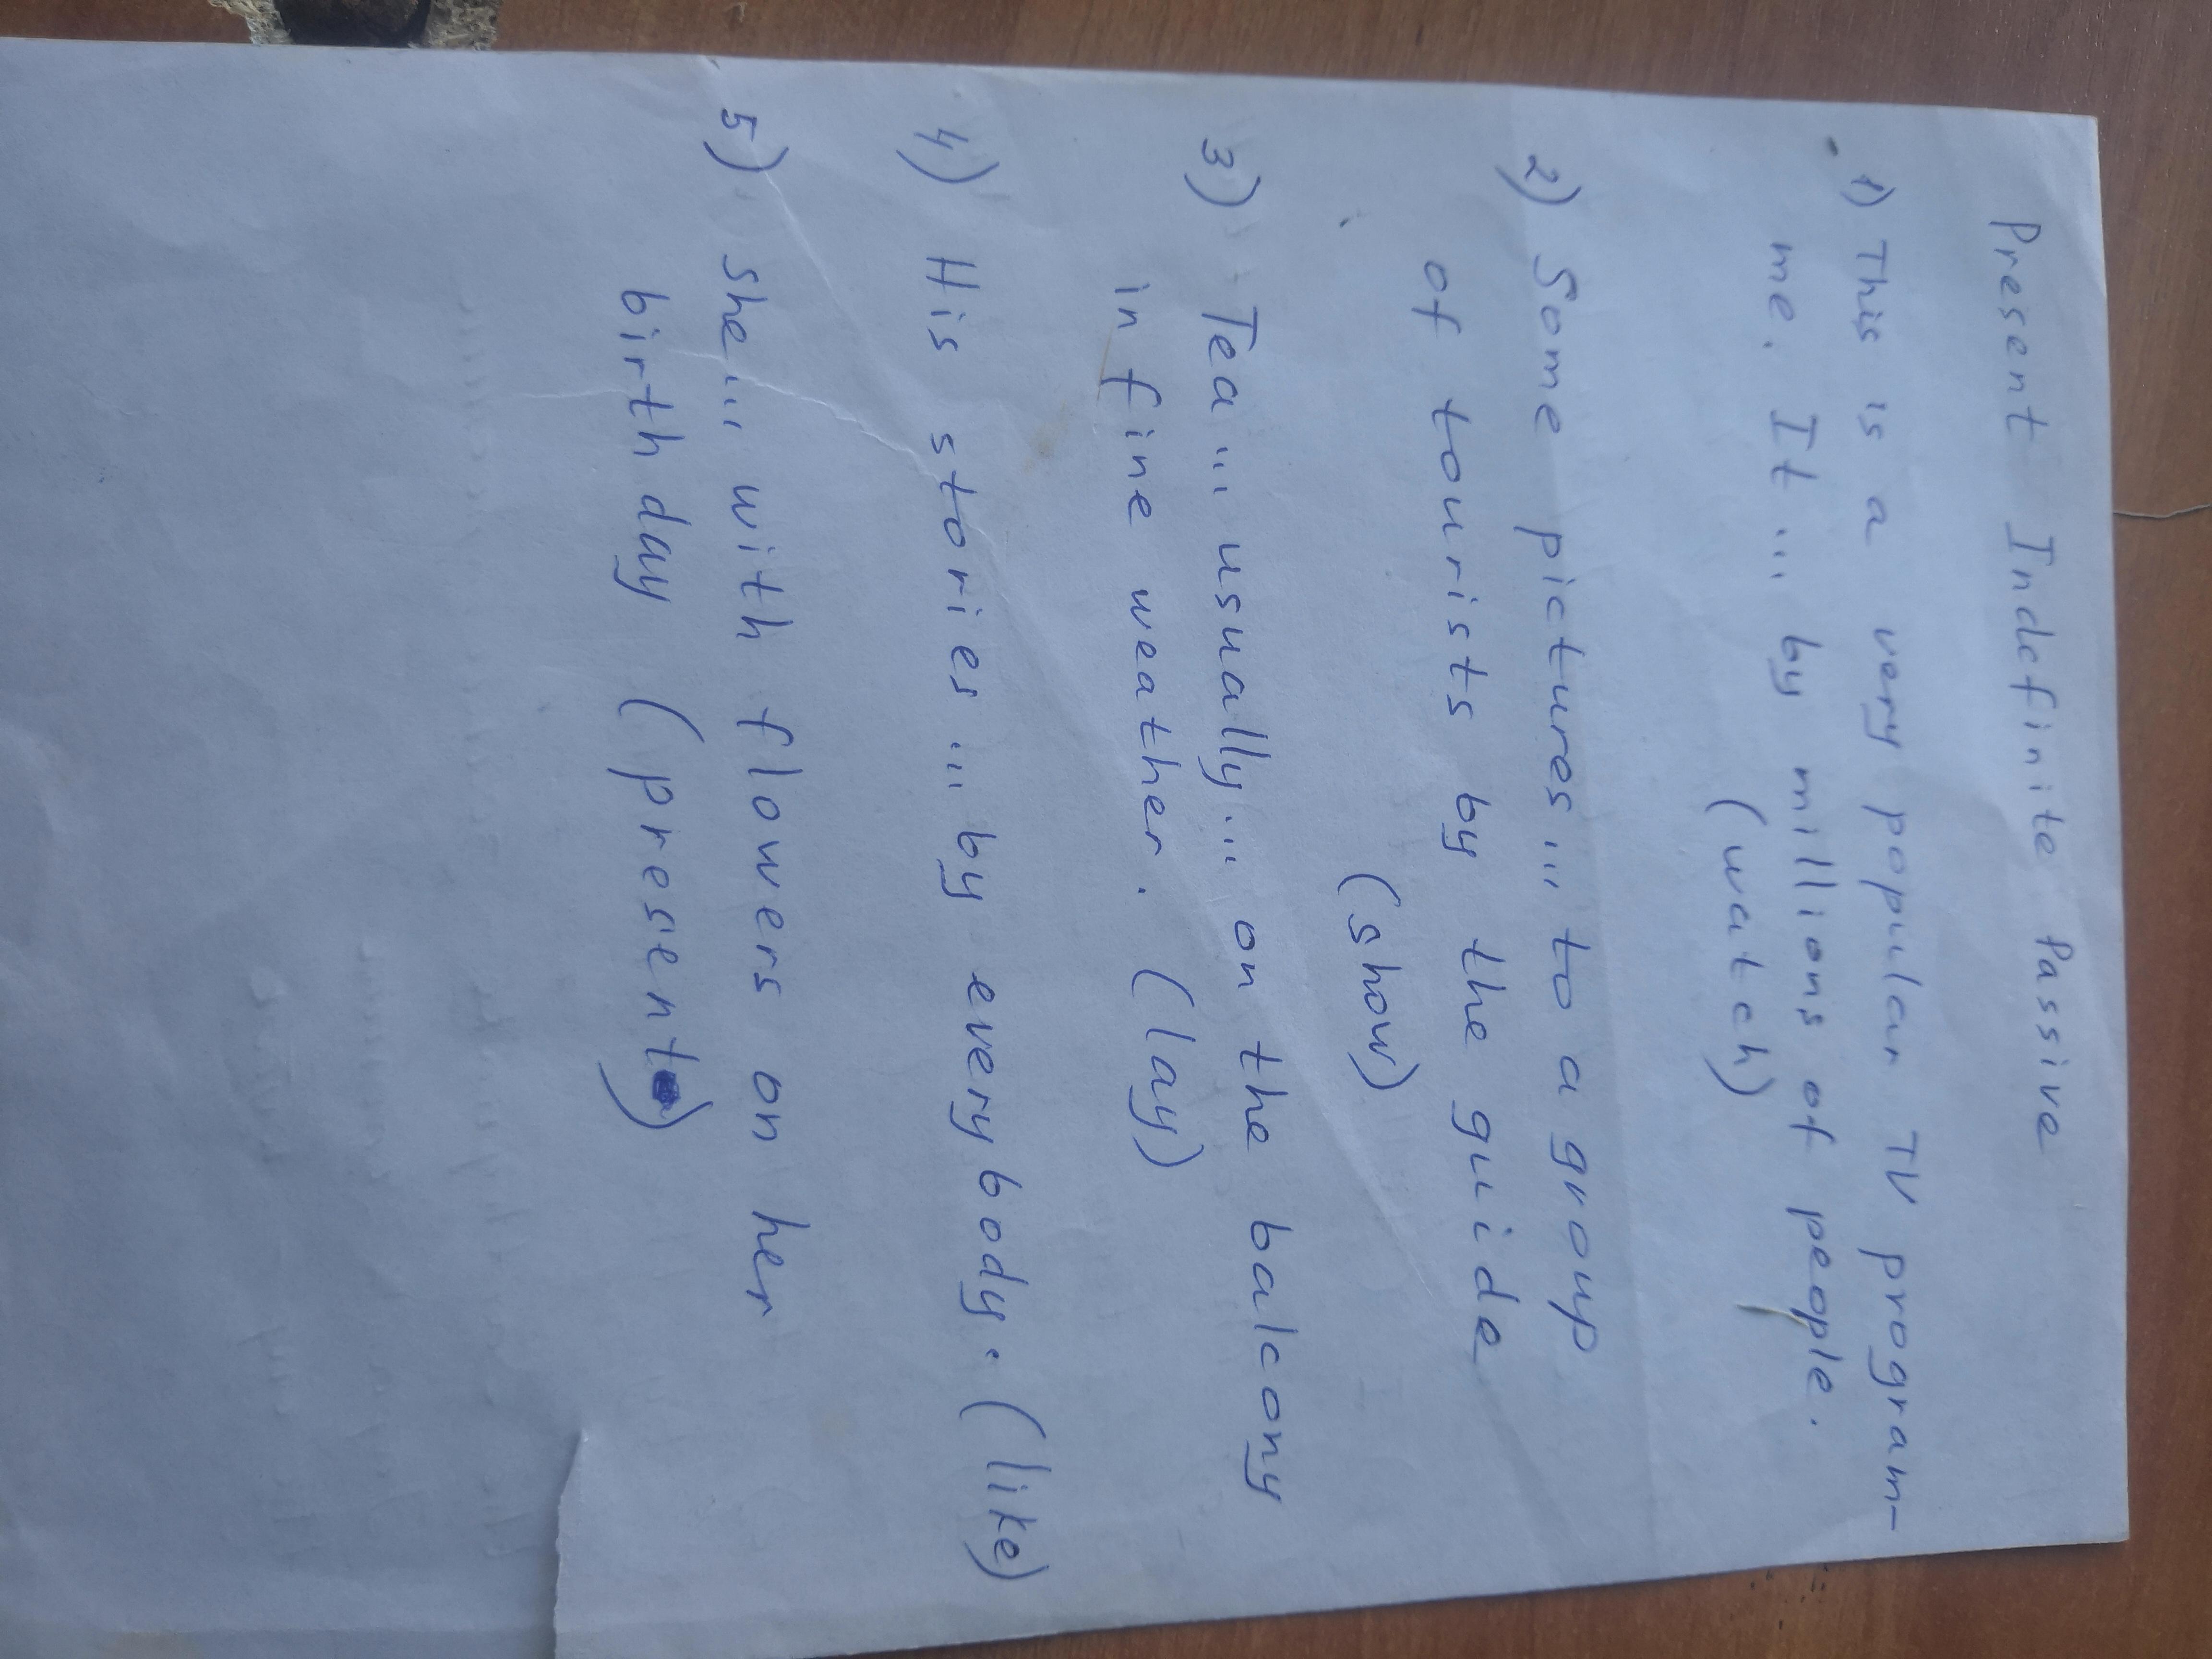 Present Indefinite Passive
1) This is a very popular TV program-
me. It ... by millions of people.
(watch)
2) Some pictures ... to a group
of tourists by the guide
(show)
3) Tea ... usually ... on the balcony
in fine weather. (lay)
4) His stories ... by everybody. (like)
5) She ... with flowers on her
birthday (present)